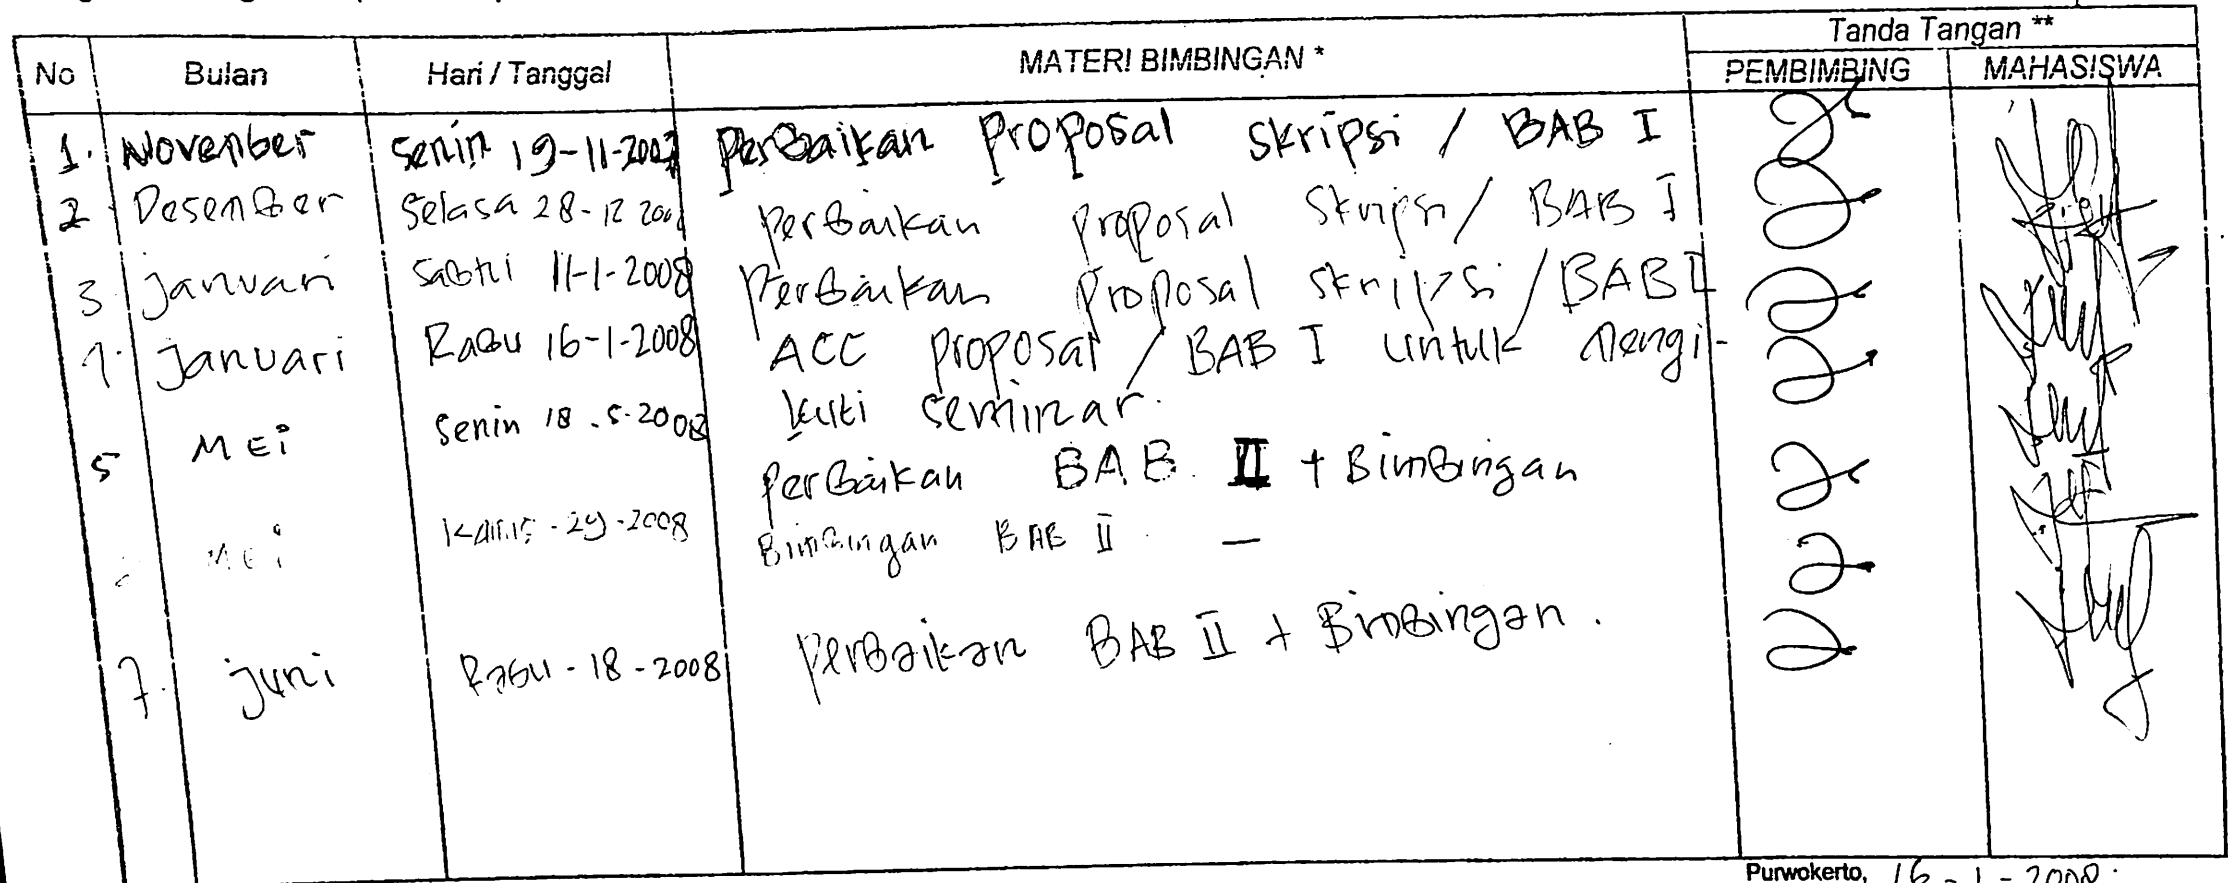 Tanda Tangan **
No Bulan Hari / Tanggal MATERI BIMBINGAN * PEMBIMBING MAHASISWA
1. November Senin 19-11-2007 Perbaikan Proposal Skripsi / BAB I
2 Desember Selasa 28-12 Perbaikan Proposal Skripsi / BAB I
3. Januari Sabtu 11-1-2008 Perbaikan Proposal Skripsi / BAB I
Januari Rabu 16-1-2008 ACC Proposal / BAB I untuk mengi-
kuti seminar.
5 MEi Senin 18.5-2008 Perbaikan BAB II + Bimbingan
MEi Kamis - 29 - 2008 Bimbingan BAB II -
7. Juni Rabu - 18 - 2008 Perbaikan BAB II + Bimbingan.
Purwokerto, 16 - 1 - 2008.